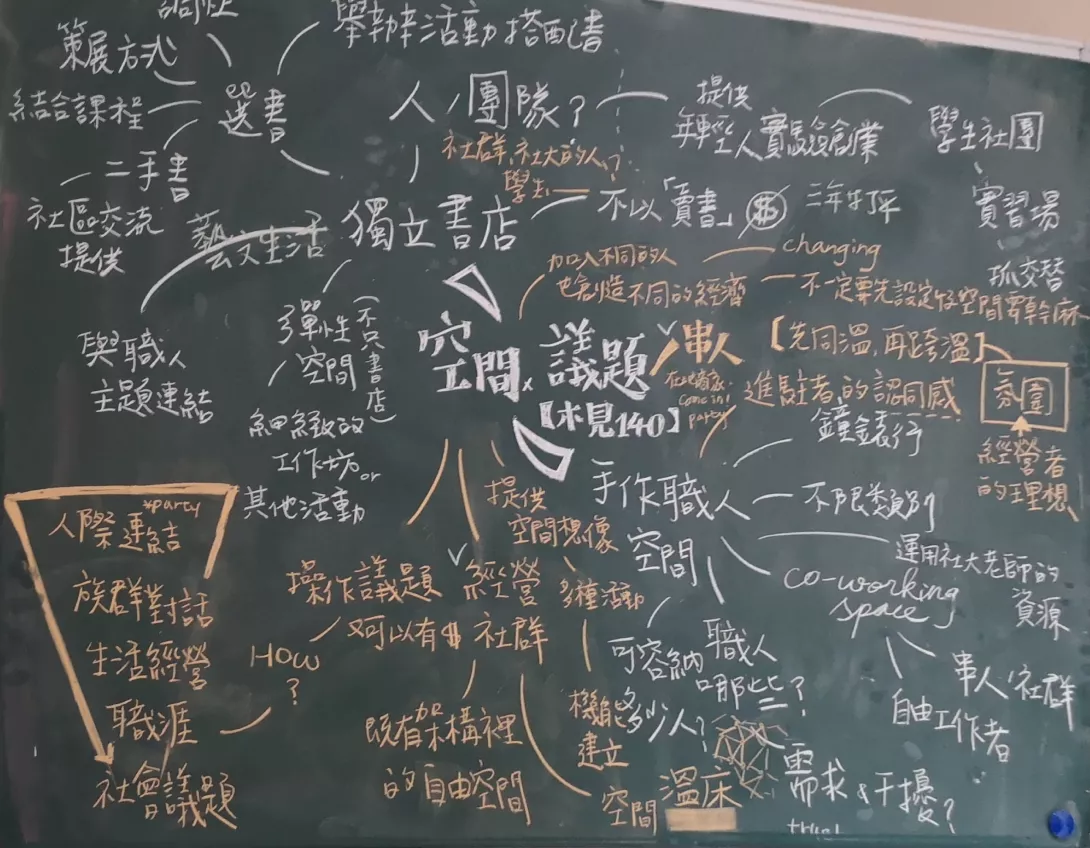 策展方式
舉辦活動搭配書
結合課程
選書
人/團隊?
提供
年輕人實驗創業
學生社團
二手書
社群、社大的人?
學生
不以「賣書」$
三年打平
實習場
社區交流
提供
藝文生活
獨立書店
加入不同的人
也創造不同的經濟
changing
不一定要先設定好空間要幹麻
抓交替
與職人
主題連結
彈性
空間
(不只書店)
空間x議題
【木見140】
串人
come in!
party
【先同溫,再跨溫】
氛圍
經營者
的理想
進駐者的認同感
鐘錶行
細緻的
工作坊or
其他活動
手作職人
空間
不限類別
運用社大老師的
資源
co-working
space
串人/社群
自由工作者
提供
空間想像
多種活動
機能
建立
空間
溫床
*party
人際連結
族群對話
生活經營
職涯
社會議題
HOW
?
操作議題
又可以有$
經營
社群
既有架構裡
的自由空間
可容納
多少人?
職人
哪些?
需求&干擾?